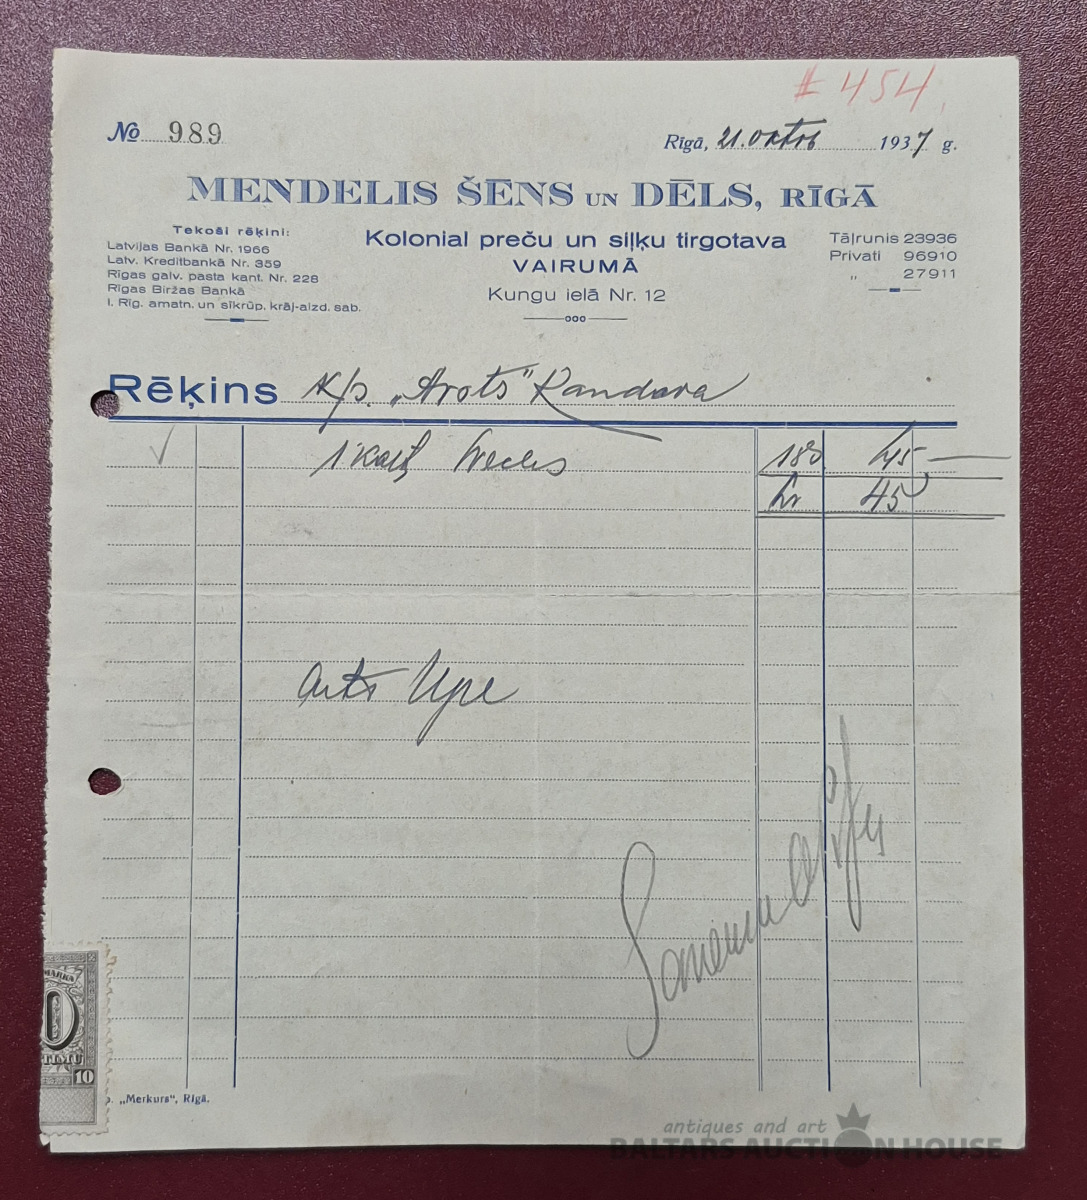 # 454
№ 989
Rīgā, 21. oktob 1937 g.
MENDELIS ŠĒNS UN DĒLS, RĪGĀ
Tekoši rēķini:
Latvijas Bankā Nr. 1966
Latv. Kredītbankā Nr. 359
Rīgas galv. pasta kant. Nr. 228
Rīgas Biržas Bankā
I. Rīg. amatn. un sīkrūp. krāj-aizd. sab.
Kolonial preču un siļķu tirgotava
VAIRUMĀ
Kungu ielā Nr. 12
ooo
Tāļrunis 23936
Privati 96910
„ 27911
Rēķins K/s. „Arots" Kandava
1 180 45
Ls 45
auto Upe
MARKA
0
TIMU
10
„Merkurs", Rīgā.
antiques and art
BALTARS AUCTION HOUSE